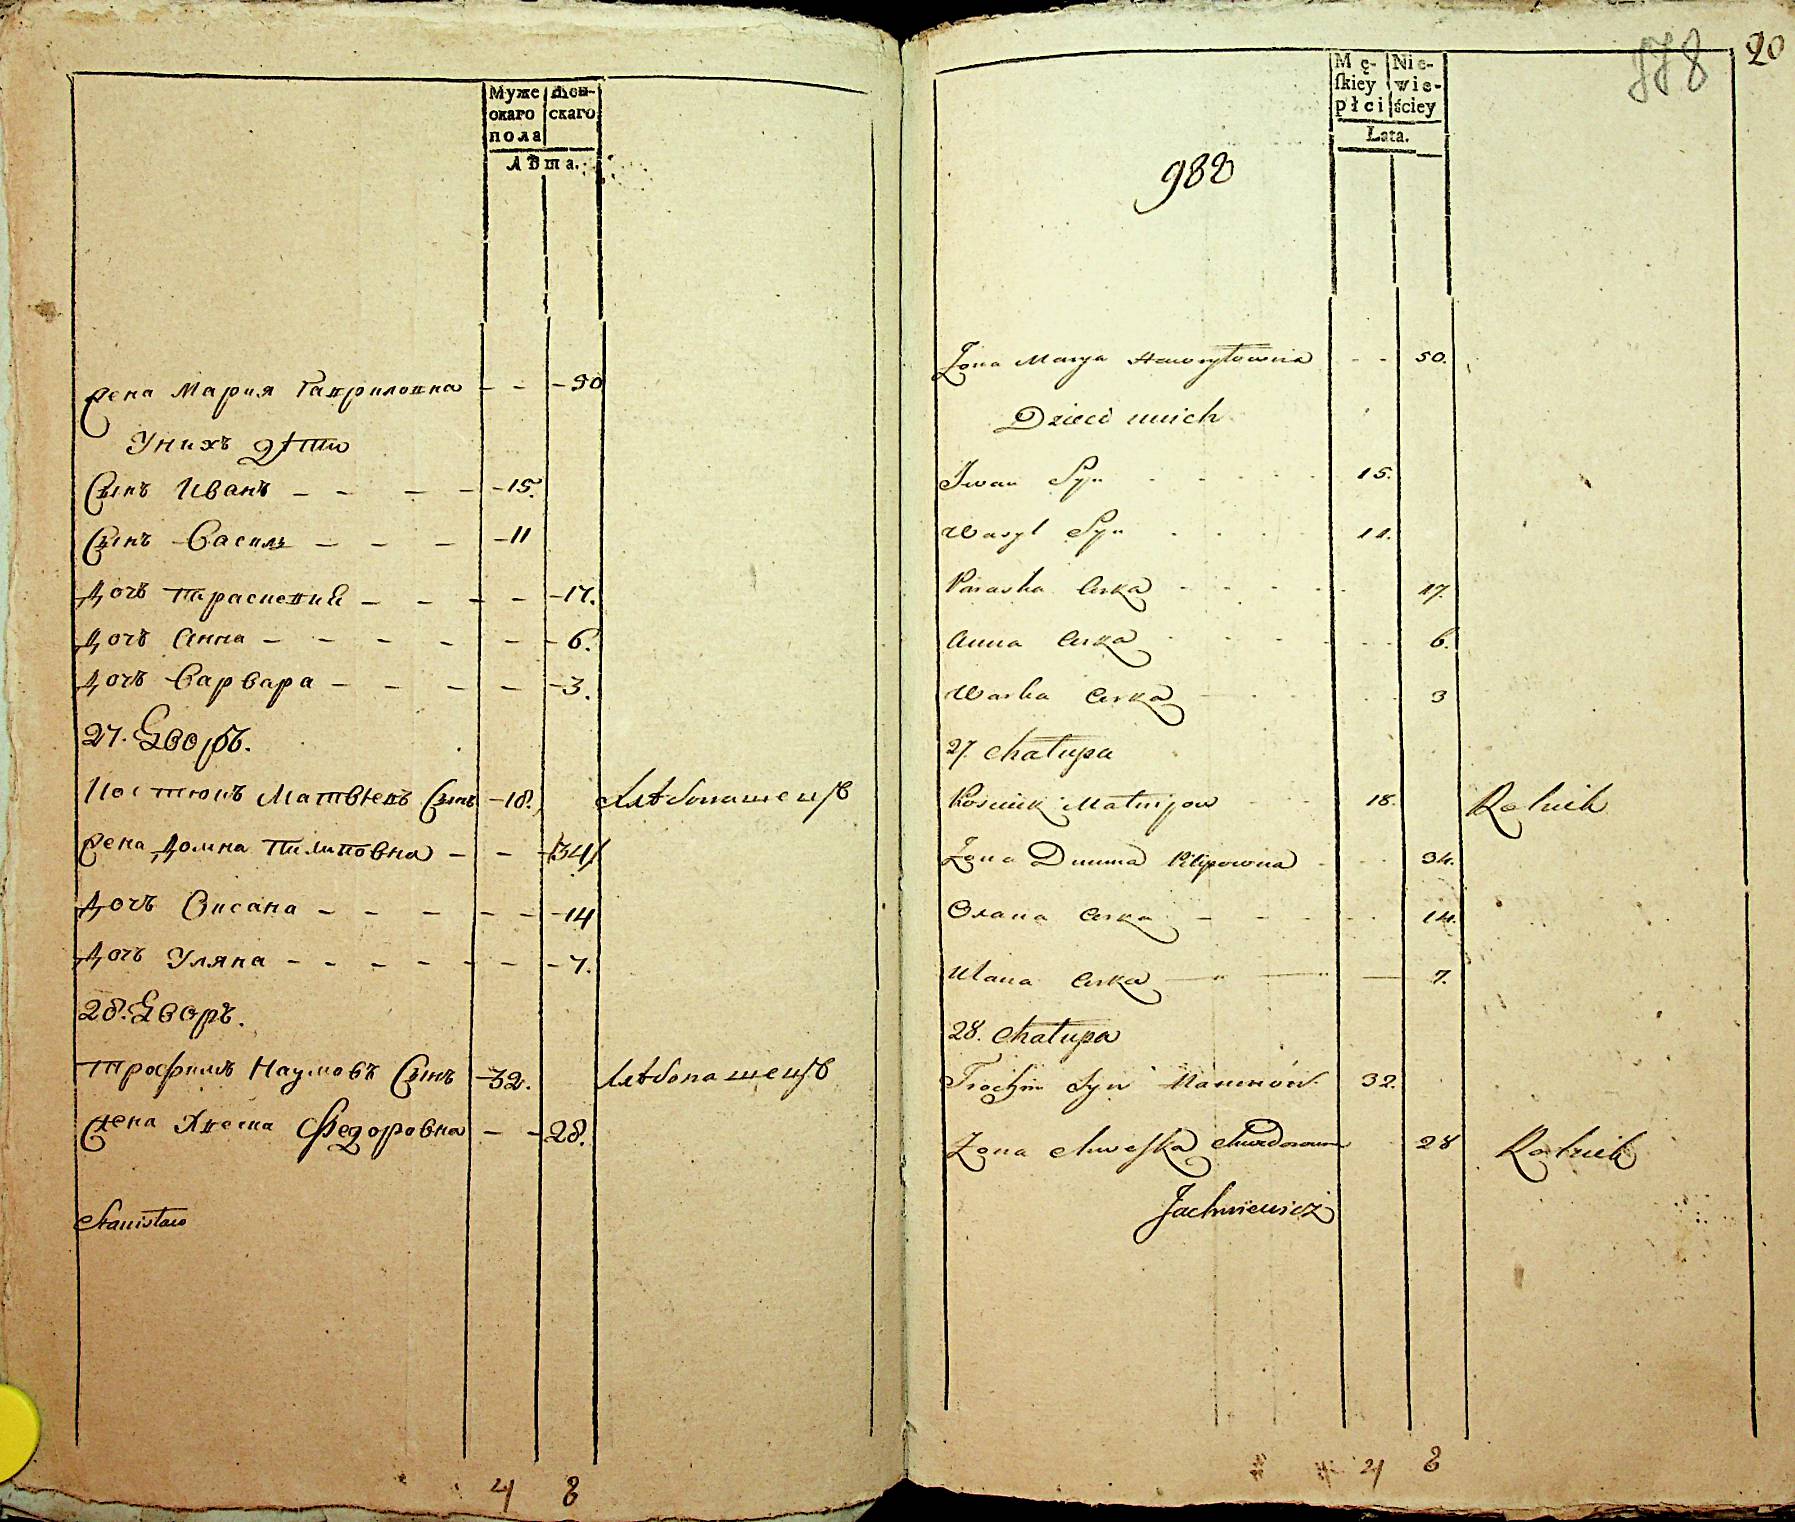 Муже Жен-
скаго скаго
пола
Лѣта.
Жена Мария Гавриловна - - - 50
У них дѣти
Сынъ Иванъ - - - - - 15.
Сынъ Василь - - - - 11
Дочъ Параскевия - - - - - 17.
Дочъ Анна - - - - - - 6.
Дочъ Варвара - - - - - 3.
27. Дворъ.
Костюкъ Матвѣевъ Сынъ - 18. Хлѣбопашецъ
Жена Домна Пилиповна - - - 34
Дочъ Оксана - - - - - - 14
Дочъ Уляна - - - - - - - 7.
28. Дворъ.
Трофимъ Наумовъ Сынъ - 32. Хлѣбопашецъ
Жена Хвеска Федоровна - - 28.
Stanisław
4 8
978 20
Mę- Nie-
ſkiey wie-
płci ściey
Lata.
982
Żona Marya Hawryłowna - - 50.
Dzieci unich
Iwan Syn - - - - - 15.
Wasyl Syn - - - - 11.
Paraska Curka - - - - - 17.
Anna Curka - - - - - - 6.
Warka Curka - - - - - 3
27. Chałupa
Kosciuk Matwijow - - - 18. Rolnik
Żona Dumna Pilipowna - - - 34.
Oxana Curka - - - - - 14.
Ulana Curka - - - 7.
28. Chałupa
Trochim Syn Naumów 32.
Żona Chweſka Chwedorowna 28 Rolnik
Jachniewicz
4 8